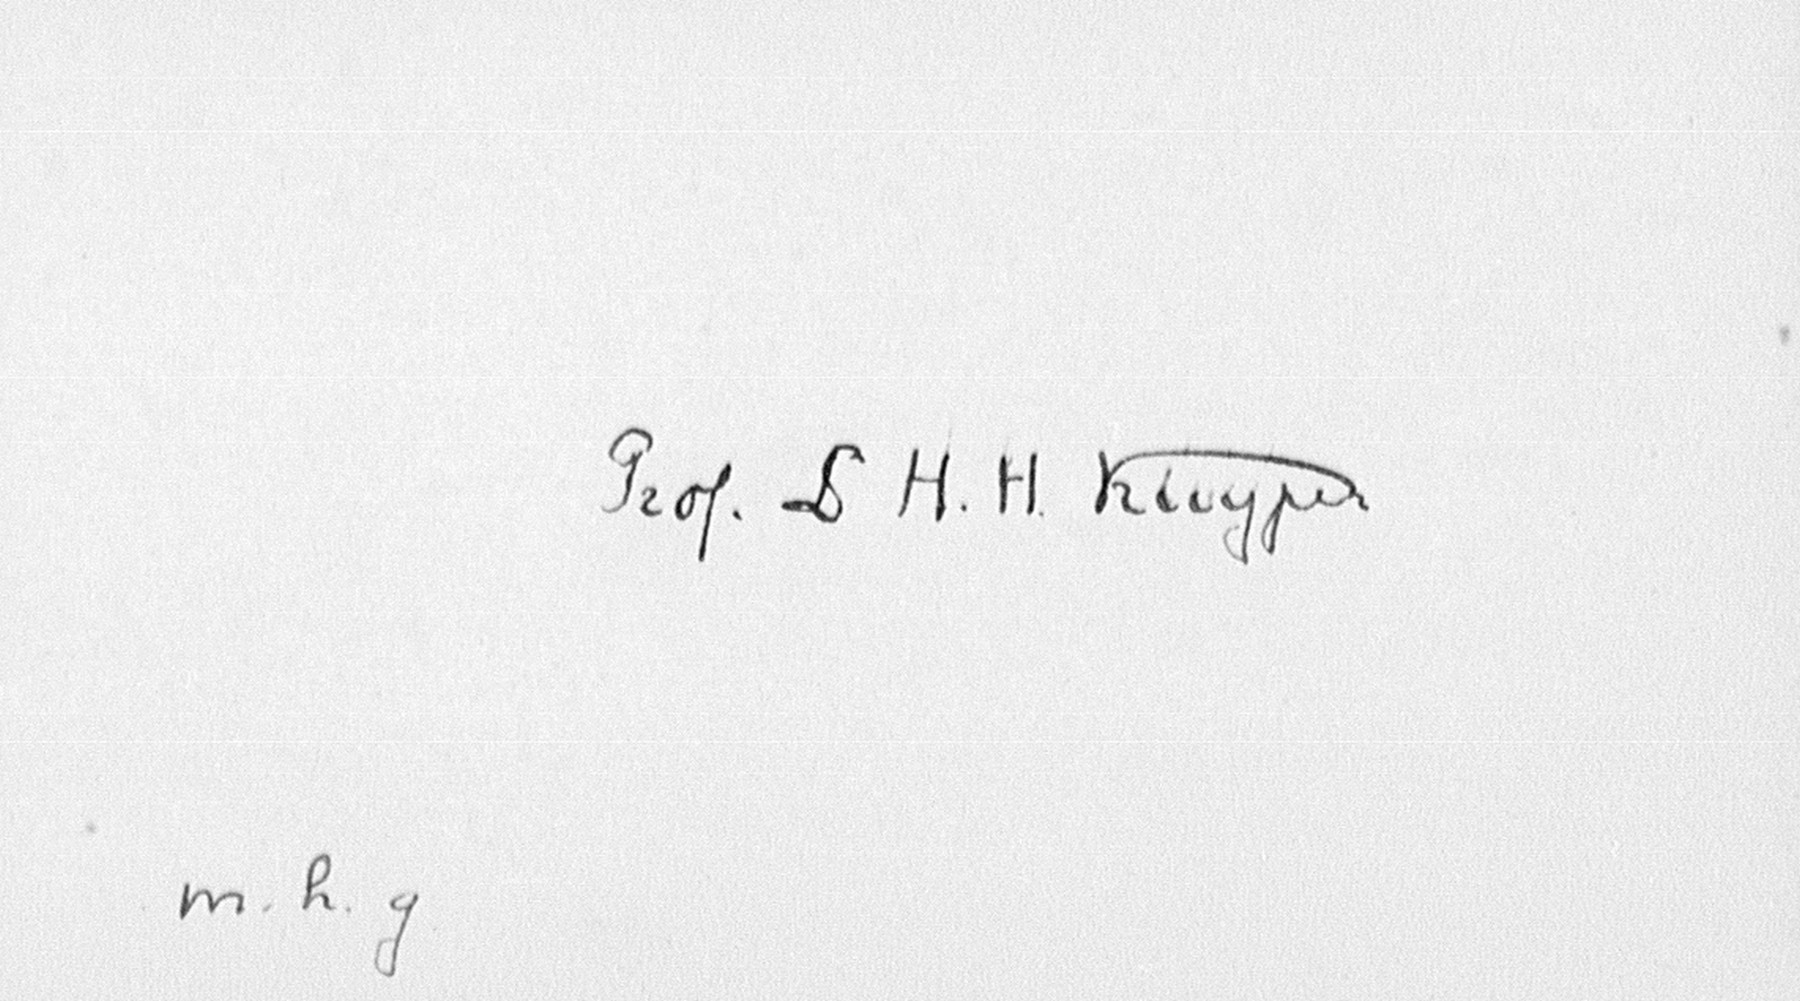 Prof. D H. H. Kuyper
m. h. g